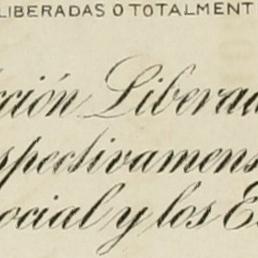 LIBERADAS O TOTALMENT
cción Liberad
spectivamens
ocial y los E